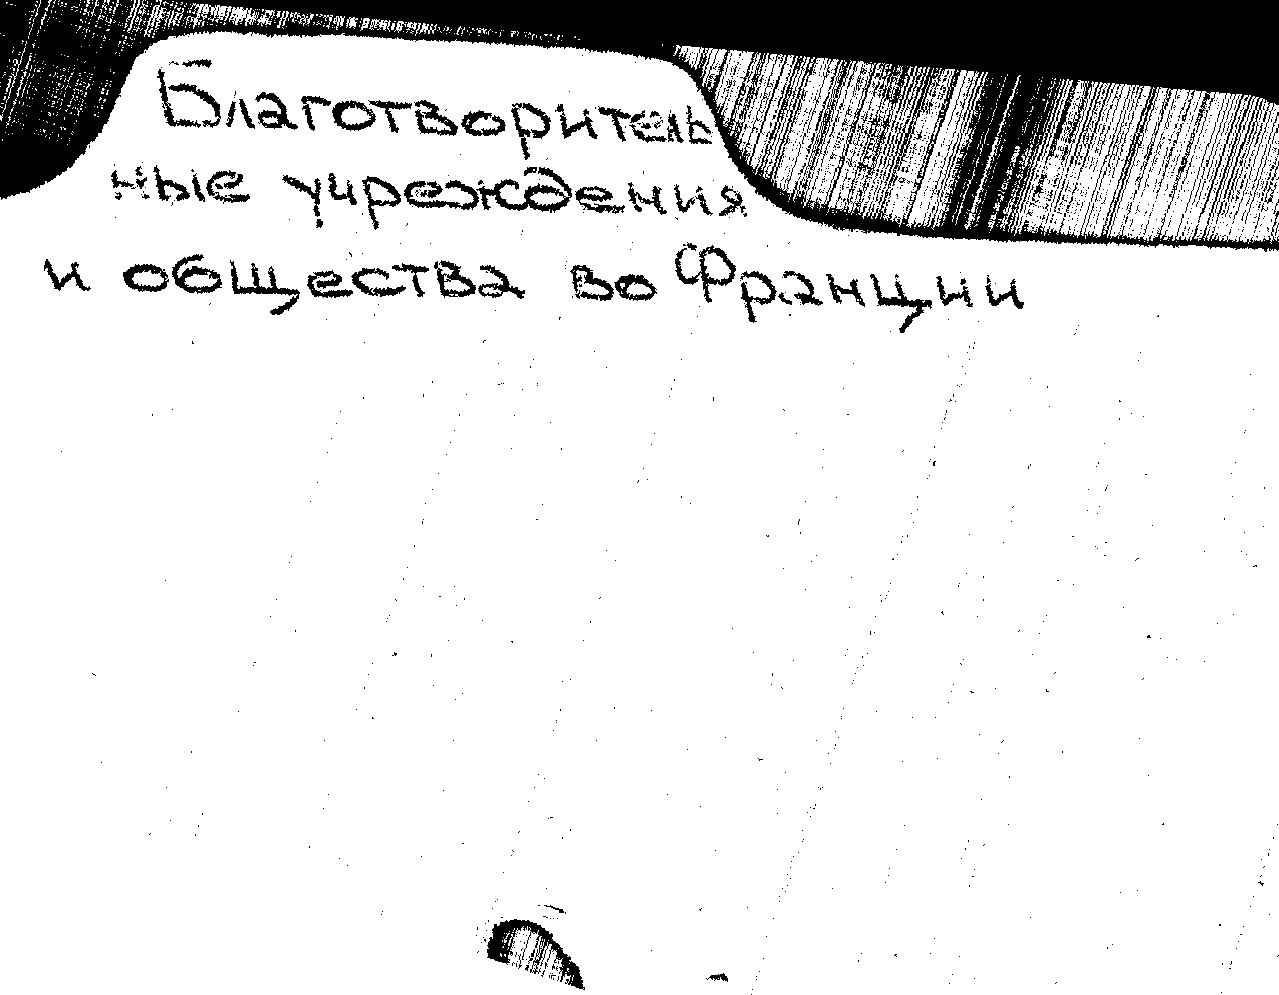 Благотворитель
ные учреждения
и общества во Франции